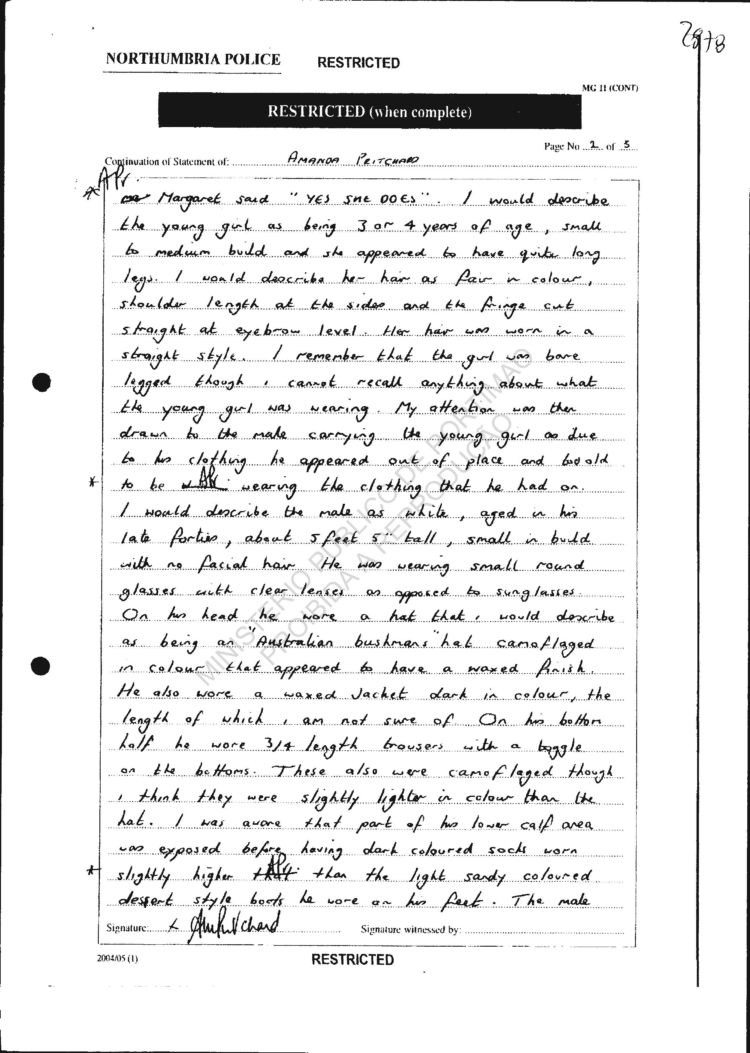 2978
NORTHUMBRIA POLICE
RESTRICTED
MG 11 (CONT)
RESTRICTED (when complete)
Page No 2 of 5
Continuation of Statement of: AMANDA PRITCHARD
APr
* Margaret said "YES SHE DOES". I would describe
the young girl as being 3 or 4 years of age, small
to medium build and she appeared to have quite long
legs. I would describe her hair as fair in colour,
shoulder length at the sides and the fringe cut
straight at eyebrow level. Her hair was worn in a
straight style. I remember that the girl was bare
legged though I cannot recall anything about what
the young girl was wearing. My attention was then
drawn to the male carrying the young girl as due
to his clothing he appeared out of place and too old
* to be wearing the clothing that he had on.
I would describe the male as white, aged in his
late forties, about 5 feet 5" tall, small in build
with no facial hair. He was wearing small round
glasses with clear lenses as opposed to sunglasses.
On his head he wore a hat that I would describe
as being an "Australian bushmans" hat camoflaged
in colour that appeared to have a waxed finish.
He also wore a waxed Jacket dark in colour, the
length of which I am not sure of. On his bottom
half he wore 3/4 length trousers with a toggle
on the bottoms. These also were camoflaged though
I think they were slightly lighter in colour than the
hat. I was aware that part of his lower calf area
was exposed before having dark coloured socks worn
* slightly higher than the light sandy coloured
dessert style boots he wore on his feet. The male
Signature: x AmPritchard Signature witnessed by:
2004/05 (1)
RESTRICTED
MINISTERIO PUBLICO DE PORTIMAO
PROIBIDA A REPRODUCTO